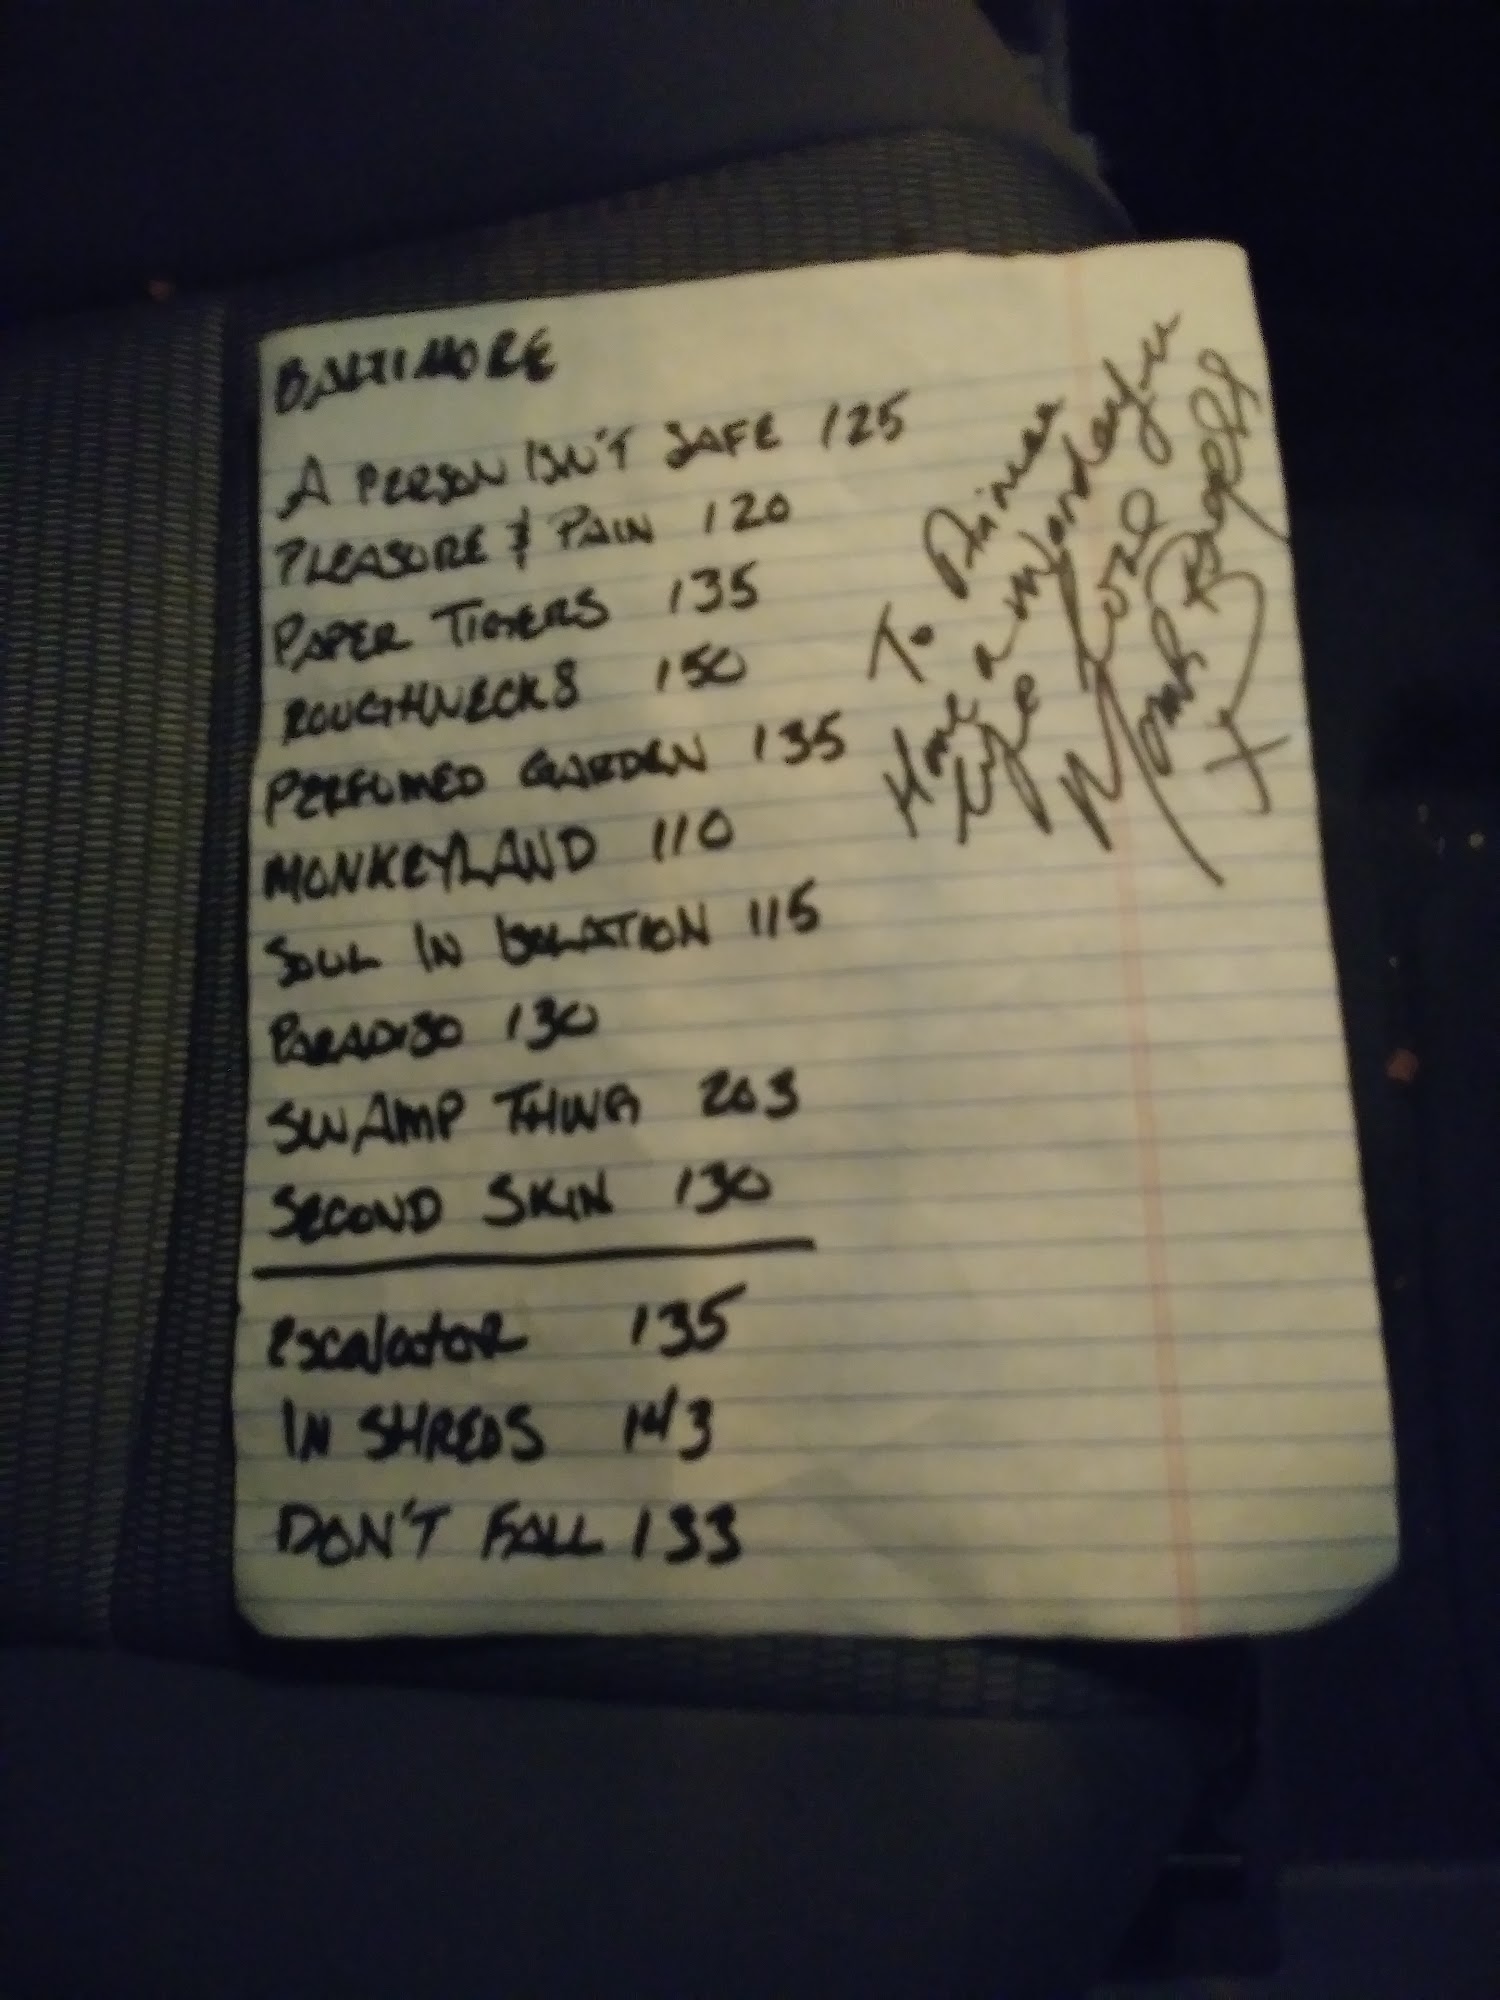 BALTIMORE
A PERSON ISN'T SAFE 125
PLEASURE & PAIN 120
PAPER TIGERS 135
ROUGHNECKS 150
PERFUMED GARDEN 135
MONKEYLAND 110
SOUL IN ISOLATION 115
PARADISO 130
SWAMP THING 203
SECOND SKIN 130
escalator 135
IN SHREDS 143
DON'T FALL 133
To
Have a Wonderful
Life
Mark